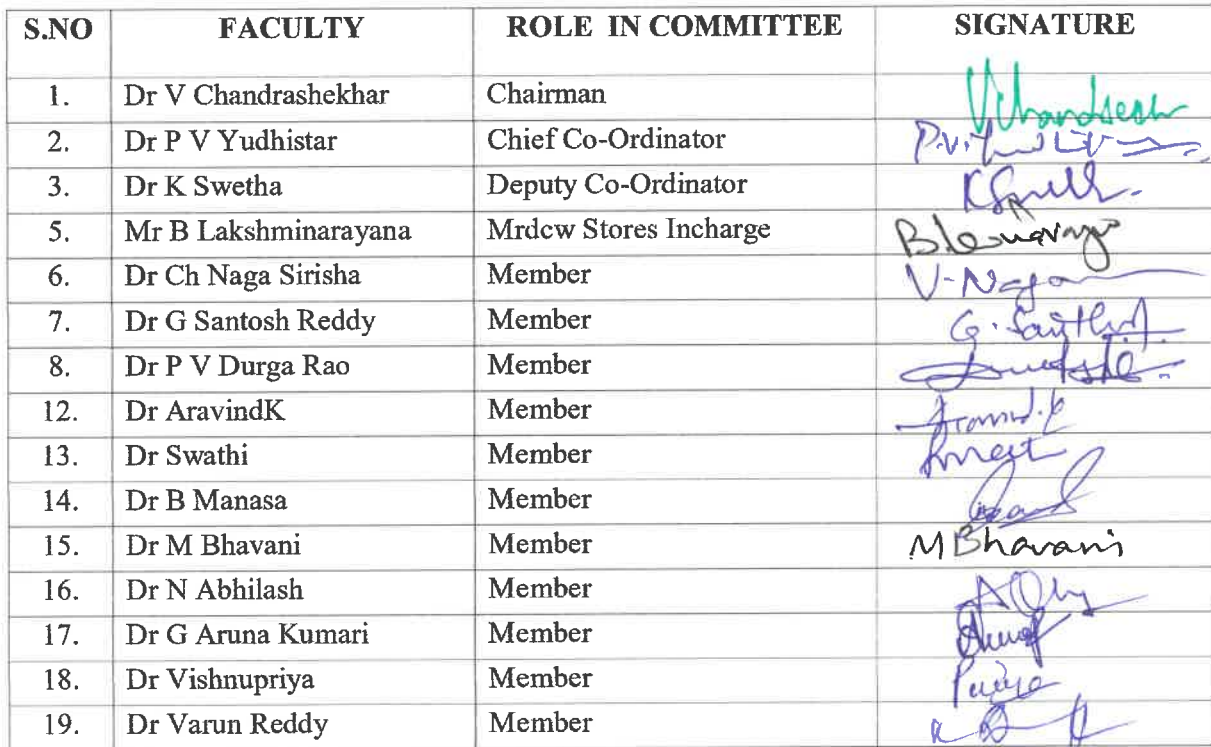 S.NO FACULTY ROLE IN COMMITTEE SIGNATURE
1. Dr V Chandrashekhar Chairman
2. Dr P V Yudhistar Chief Co-Ordinator P.V.
3. Dr K Swetha Deputy Co-Ordinator
5. Mr B Lakshminarayana Mrdcw Stores Incharge
6. Dr Ch Naga Sirisha Member
7. Dr G Santosh Reddy Member G.
8. Dr P V Durga Rao Member
12. Dr AravindK Member
13. Dr Swathi Member
14. Dr B Manasa Member
15. Dr M Bhavani Member M Bhavani
16. Dr N Abhilash Member
17. Dr G Aruna Kumari Member
18. Dr Vishnupriya Member
19. Dr Varun Reddy Member